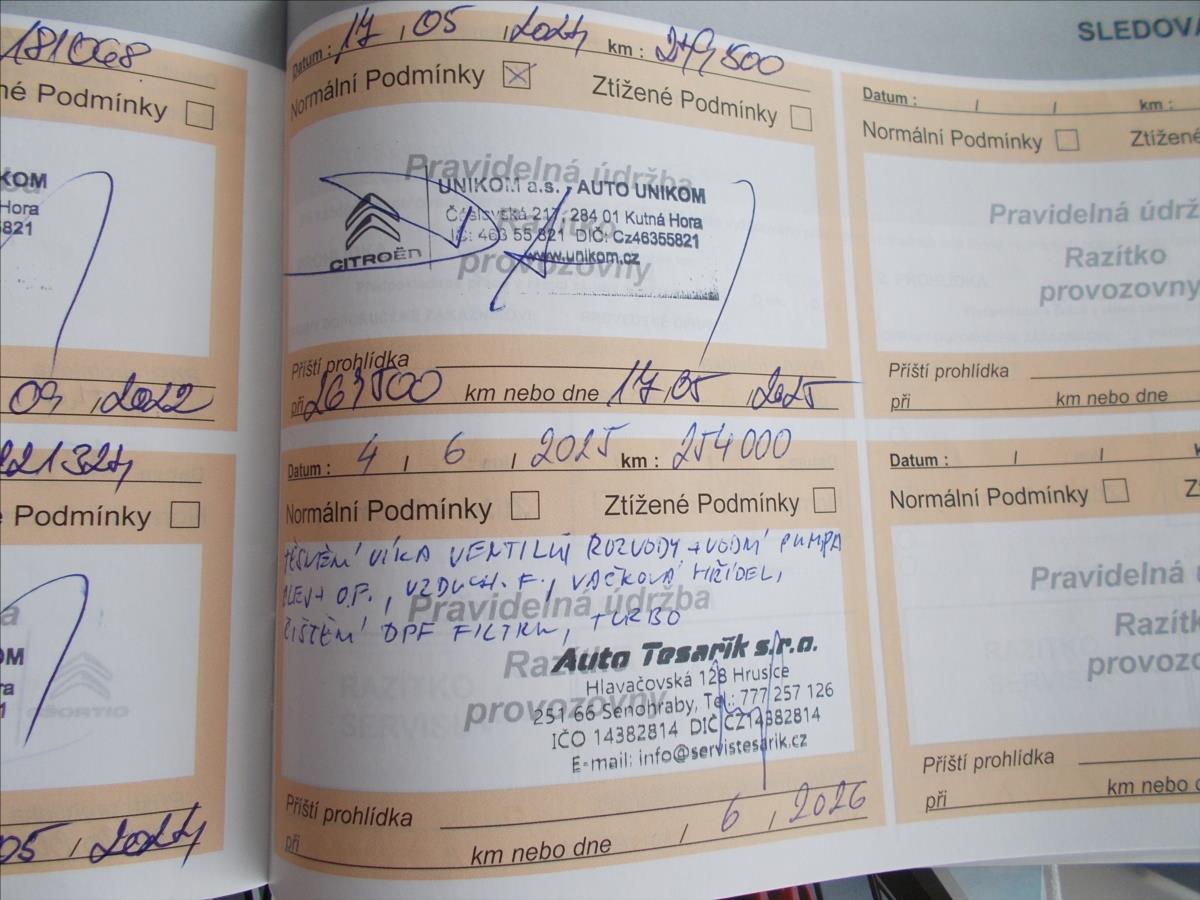 181068
né Podmínky
KOM
Hora
5821
09 / 2022
221324
é Podmínky
OM
ra
1
05 / 2024
Datum : 17 / 05 / 2024 km : 249500
Normální Podmínky Ztížené Podmínky
Pravidelná údržba
Razítko
provozovny
CITROËN
UNIKOM a.s., AUTO UNIKOM
Čáslavská 217, 284 01 Kutná Hora
IČ: 463 55 821 DIČ: Cz46355821
www.unikom.cz
Příští prohlídka
při 269500 km nebo dne 17 / 05 / 2025
Datum : 4 / 6 / 2025 km : 254000
Normální Podmínky Ztížené Podmínky
TĚSNĚNÍ VÍKA VENTILŮ, ROZVODY + VODNÍ PUMPA
OLEJ + O.F., VZDUCH. F., VAČKOVÁ HŘÍDEL,
ČIŠTĚNÍ DPF FILTRU, TURBO
Pravidelná údržba
Razítko
provozovny
Auto Tesařík s.r.o.
Hlavačovská 128 Hrusice
251 66 Senohraby, Tel.: 777 257 126
IČO 14382814 DIČ CZ14382814
E-mail: info@servistesarik.cz
Příští prohlídka
při km nebo dne / 6 / 2026
SLEDOVÁ
Datum : / / km :
Normální Podmínky Ztížené
Pravidelná údrž
Razítko
provozovny
Příští prohlídka
při km nebo dne
Datum : / / k
Normální Podmínky Z
Pravidelná
Razít
provozo
Příští prohlídka
při km nebo d